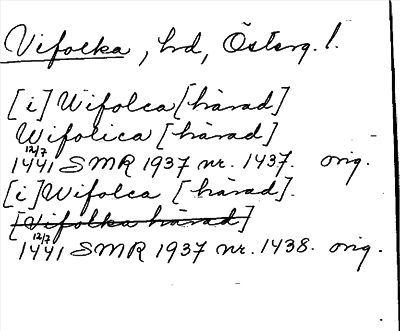 Vifolka, hd, Österg. l.
[i] Wifolca [härad]
Wifolica [härad]
12/7
1441 SMR 1937 nr. 1437. orig.
[i] Wifolca [härad].
[Vifolka härad]
12/7
1441 SMR 1937 nr. 1438. orig.